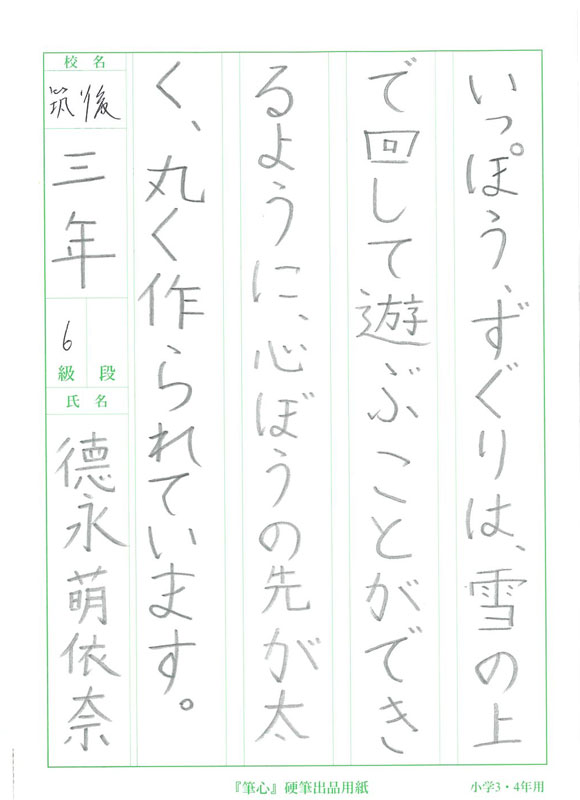 いっぽう、ずぐりは、雪の上
で回して遊ぶことができ
るように、心ぼうの先が太
く、丸く作られています。
校名
筑後
三年
6
級 段
氏名
德永萌依奈
『筆心』硬筆出品用紙
小学3・4年用